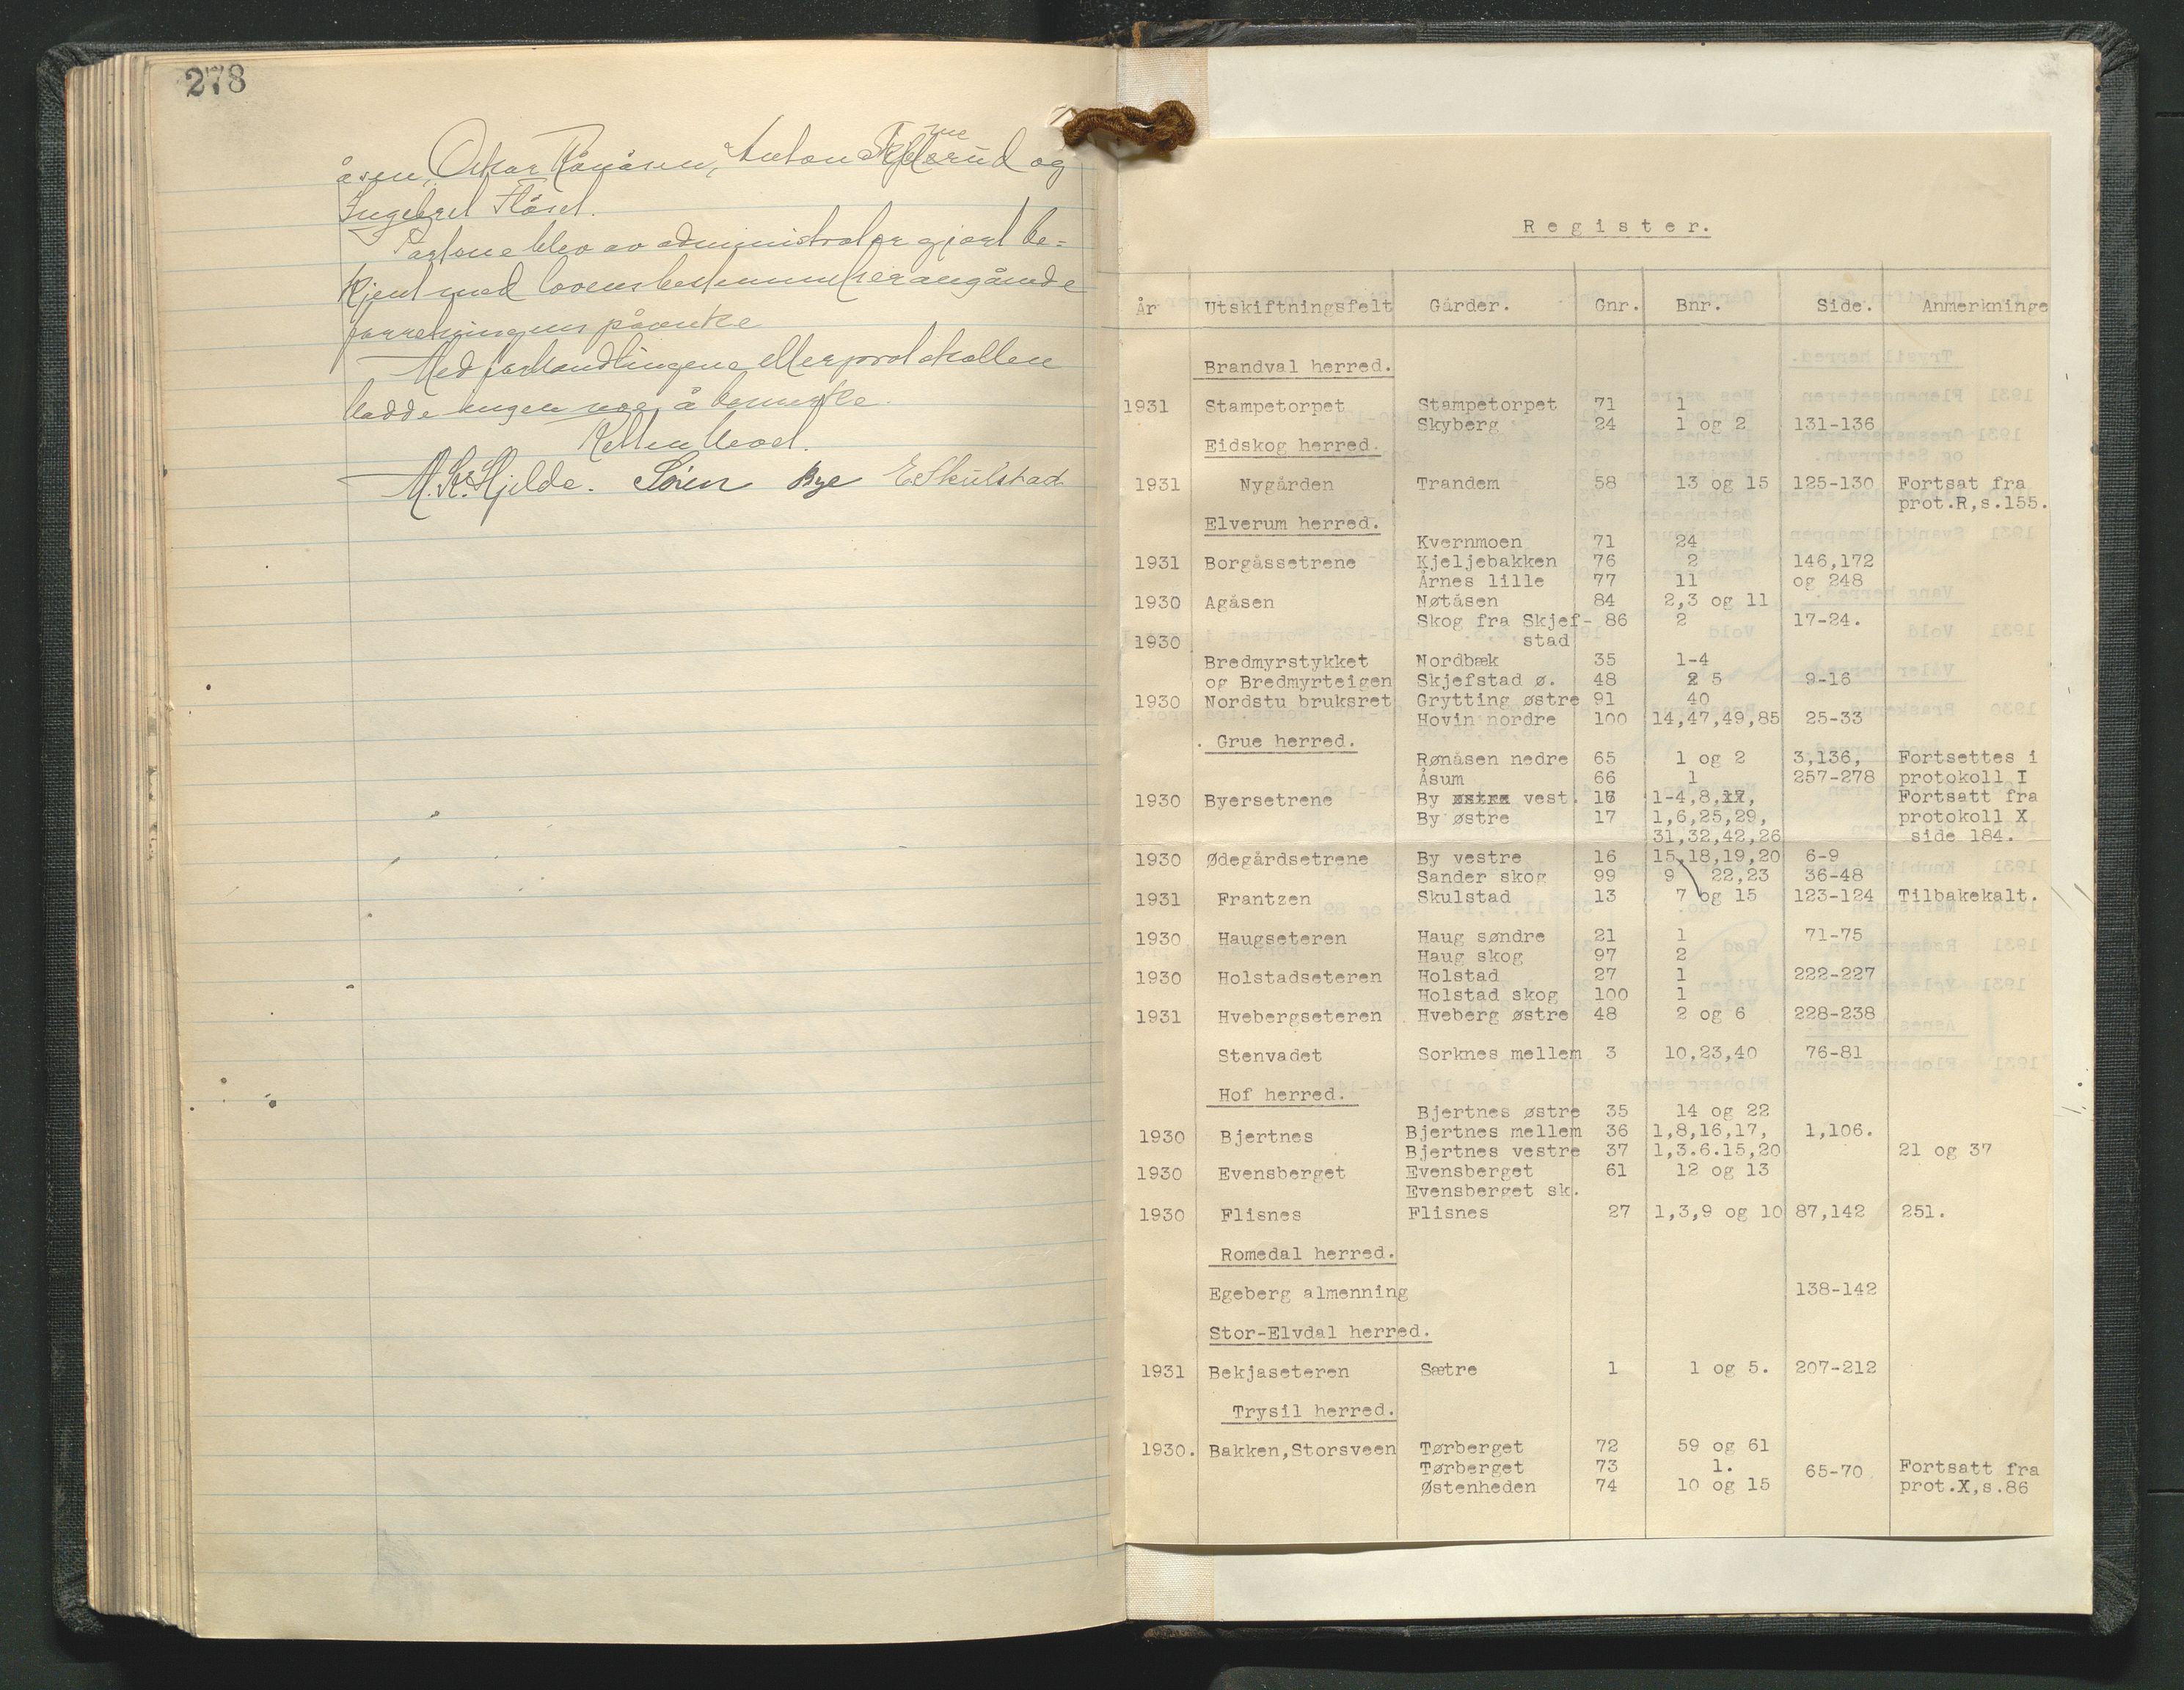 278
åsen, Oskar Rånåsen, Anton og
Ingebret Flåset.
Partene blev av administrator gjort be=
kjent med lovens bestemmelser angående
forretningens påanke
Med forhandlingene eller protokollen
hadde ingen noe å bemerke.
Retten hevet.
M. Kr. Hjelde. Søren Bye E. Skulstad
Register.
År Utskiftningsfelt Gårder. Gnr. Bnr. Side. Anmerkninge
Brandval herred.
1931 Stampetorpet Stampetorpet 71 1
Skyberg 24 1 og 2 131-136
Eidskog herred.
1931 Nygården Trandem 58 13 og 15 125-130 Fortsat fra
prot.R,s.155.
Elverum herred.
Kvernmoen 71 24
1931 Borgåssetrene Kjeljebakken 76 2 146,172
Årnes lille 77 11 og 248
1930 Agåsen Nøtåsen 84 2,3 og 11
Skog fra Skjef- 86 2 17-24.
1930 stad
Bredmyrstykket Nordbæk 35 1-4
og Bredmyrteigen Skjefstad ø. 48 2 5 9-16
1930 Nordstu bruksret Grytting østre 91 40
Hovin nordre 100 14,47,49,85 25-33
. Grue herred.
Rønåsen nedre 65 1 og 2 3,136, Fortsettes i
Åsum 66 1 257-278 protokoll I
1930 Byersetrene By østre vest. 16 1-4,8,17, Fortsatt fra
By østre 17 1,6,25,29, protokoll X
31,32,42,26 side 184.
1930 Ødegårdsetrene By vestre 16 15,18,19,20 6-9
Sander skog 99 9 22,23 36-48
1931 Frantzen Skulstad 13 7 og 15 123-124 Tilbakekalt.
1930 Haugseteren Haug søndre 21 1 71-75
Haug skog 97 2
1930 Holstadseteren Holstad 27 1 222-227
Holstad skog 100 1
1931 Hvebergseteren Hveberg østre 48 2 og 6 228-238
Stenvadet Sorknes mellem 3 10,23,40 76-81
Hof herred.
Bjertnes østre 35 14 og 22
1930 Bjertnes Bjertnes mellem 36 1,8,16,17, 1,106.
Bjertnes vestre 37 1,3.6.15,20 21 og 37
1930 Evensberget Evensberget 61 12 og 13
Evensberget sk.
1930 Flisnes Flisnes 27 1,3,9 og 10 87,142 251.
Romedal herred.
Egeberg almenning 138-142
Stor-Elvdal herred.
1931 Bekjaseteren Sætre 1 1 og 5. 207-212
Trysil herred.
1930. Bakken,Storsveen Tørberget 72 59 og 61
Tørberget 73 1. 65-70 Fortsatt fra
Østenheden 74 10 og 15 prot.X,s.86